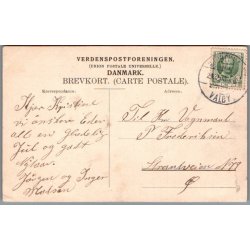 VERDENSPOSTFORENINGEN.
(UNION POSTALE UNIVERSELLE.)
DANMARK.
BREVKORT. (CARTE POSTALE).
Korrespondance. Adresse.
Kjer Kristine
vi ønskere Eder
all en Glædelig
Juil og godt
Nytaar
Jørgen og Inger
Til Hr Vognmand
P Frederiksen
VALBY